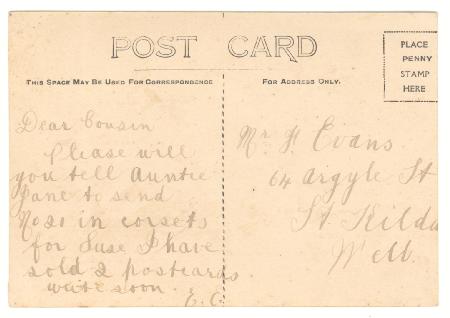 POST CARD
PLACE
PENNY
STAMP
HERE
THIS SPACE MAY BE USED FOR CORRESPONDENCE
FOR ADDRESS ONLY.
Dear Cousin
Please will
you tell Auntie
Jane to send
No 21 in corsets
for Suse I have
sold 2 postcards
write soon.
E. C.
Mr F Evans
64 Argyle St
St. Kilda